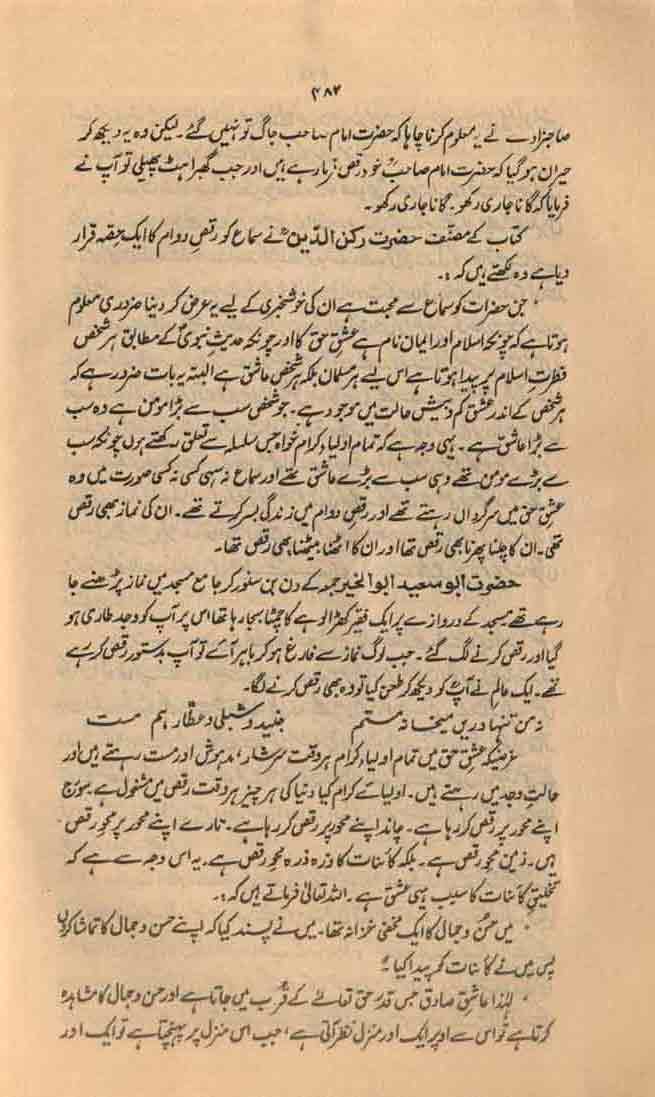 ۴۸۷
صاحبزادے نے یہ معلوم کرنا چاہا کہ حضرت امام صاحب جاگ تو نہیں گئے۔ لیکن وہ یہ دیکھ کر
حیران ہو گیا کہ حضرت امام صاحبؒ خود رقص فرما رہے ہیں اور جب گھبراہٹ پھیلی تو آپ نے
فرمایا کہ گانا جاری رکھو۔ گانا جاری رکھو۔
کتاب کے مصنف حضرت رکن الدینؒ نے سماع کو رقصِ دوام کا ایک حصہ قرار
دیا ہے وہ لکھتے ہیں کہ :۔
" جن حضرات کو سماع سے محبت ہے ان کی خوشخبری کے لیے یہ عرض کر دینا ضروری معلوم
ہوتا ہے کہ چونکہ اسلام اور ایمان نام ہے عشقِ حق کا اور چونکہ حدیثِ نبویؐ کے مطابق ہر شخص
فطرتِ اسلام پر پیدا ہوتا ہے اس لیے ہر مسلمان بلکہ ہر شخص عاشق ہے البتہ یہ بات ضرور ہے کہ
ہر شخص کے اندر عشق کم و بیش حالت میں موجود ہے۔ جو شخص سب سے بڑا مومن ہے وہ سب
سے بڑا عاشق ہے۔ یہی وجہ ہے کہ تمام اولیاء کرام خواہ جس سلسلہ سے تعلق رکھتے ہوں چونکہ سب
سے بڑے مومن تھے وہی سب سے بڑے عاشق تھے اور سماع نہ سہی کسی نہ کسی صورت میں وہ
عشق حق میں سرگرداں رہتے تھے اور رقصِ دوام میں زندگی بسر کرتے تھے۔ ان کی نماز بھی رقص
تھی۔ ان کا چلنا پھرنا بھی رقص تھا اور ان کا اٹھنا بیٹھنا بھی رقص تھا۔
حضرت ابو سعید ابو الخیر جمعہ کے دن بن سنور کر جامع مسجد میں نماز پڑھنے جا
رہے تھے مسجد کے دروازے پر ایک فقیر کھڑا لوہے کا چمٹا بجا رہا تھا اس پر آپ کو وجد طاری ہو
گیا اور رقص کرنے لگ گئے۔ جب لوگ نماز سے فارغ ہو کر باہر آئے تو آپ بدستور رقص کر رہے
تھے۔ ایک عالم نے آپؒ کو دیکھ کر طعن کیا تو وہ بھی رقص کرنے لگا۔
نہ من تنہا دریں میخانہ مستم جنید و شبلی و عطار ہم مست
غرضیکہ عشقِ حق میں تمام اولیاء کرام ہر وقت سرشار، مدہوش اور مست رہتے ہیں اور
حالتِ وجد میں رہتے ہیں۔ اولیائے کرام کیا دنیا کی ہر چیز ہر وقت رقص میں مشغول ہے۔ سورج
اپنے محور پر رقص کر رہا ہے۔ چاند اپنے محور پر رقص کر رہا ہے۔ تارے اپنے محور پر محوِ رقص
ہیں۔ زمین محوِ رقص ہے۔ بلکہ کائنات کا ذرہ ذرہ محوِ رقص ہے۔ یہ اس وجہ سے ہے کہ
تخلیقِ کائنات کا سبب یہی عشق ہے۔ اللہ تعالیٰ فرماتے ہیں کہ :۔
" میں حسن و جمال کا ایک مخفی خزانہ تھا۔ میں نے پسند کیا کہ اپنے حسن و جمال کا تماشا کروں
پس میں نے کائنات کو پیدا کیا۔"
" لہٰذا عاشقِ صادق جس قدر حق تعالےٰ کے قرب میں جاتا ہے اور حسن و جمال کا مشاہدہ
کرتا ہے تو اس سے اوپر ایک اور منزل نظر آتی ہے، جب اس منزل پر پہنچتا ہے تو ایک اور